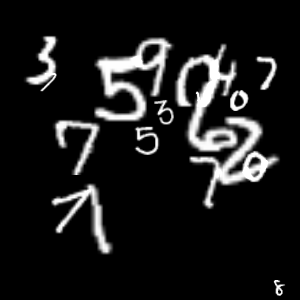 3 5 9 0 4 7
3 0
7 5 6 2
7 0
8